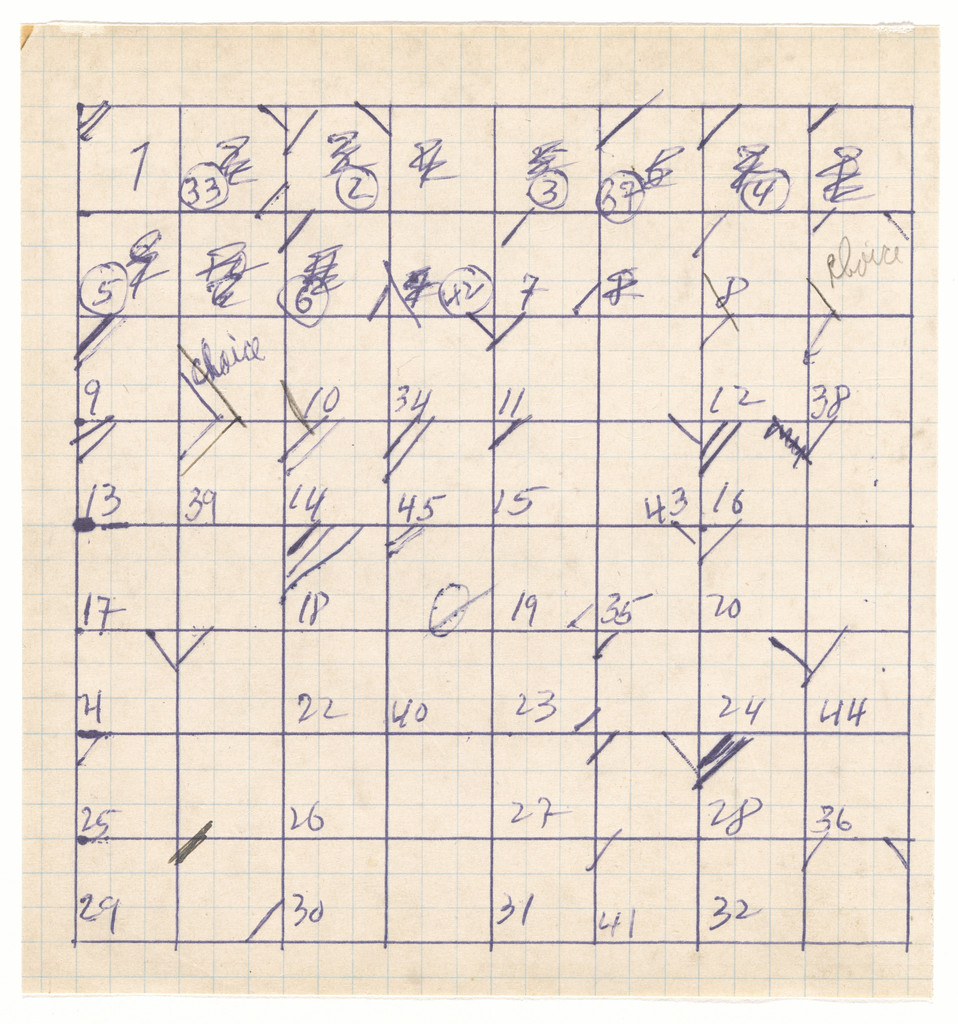 1 33 2 3 37 4
5 6 42 7 8 choice
9 choice 10 34 11 12 38
13 39 14 45 15 43 16
17 18 19 35 20
22 40 23 24 44
25 26 27 28 36
29 30 31 41 32